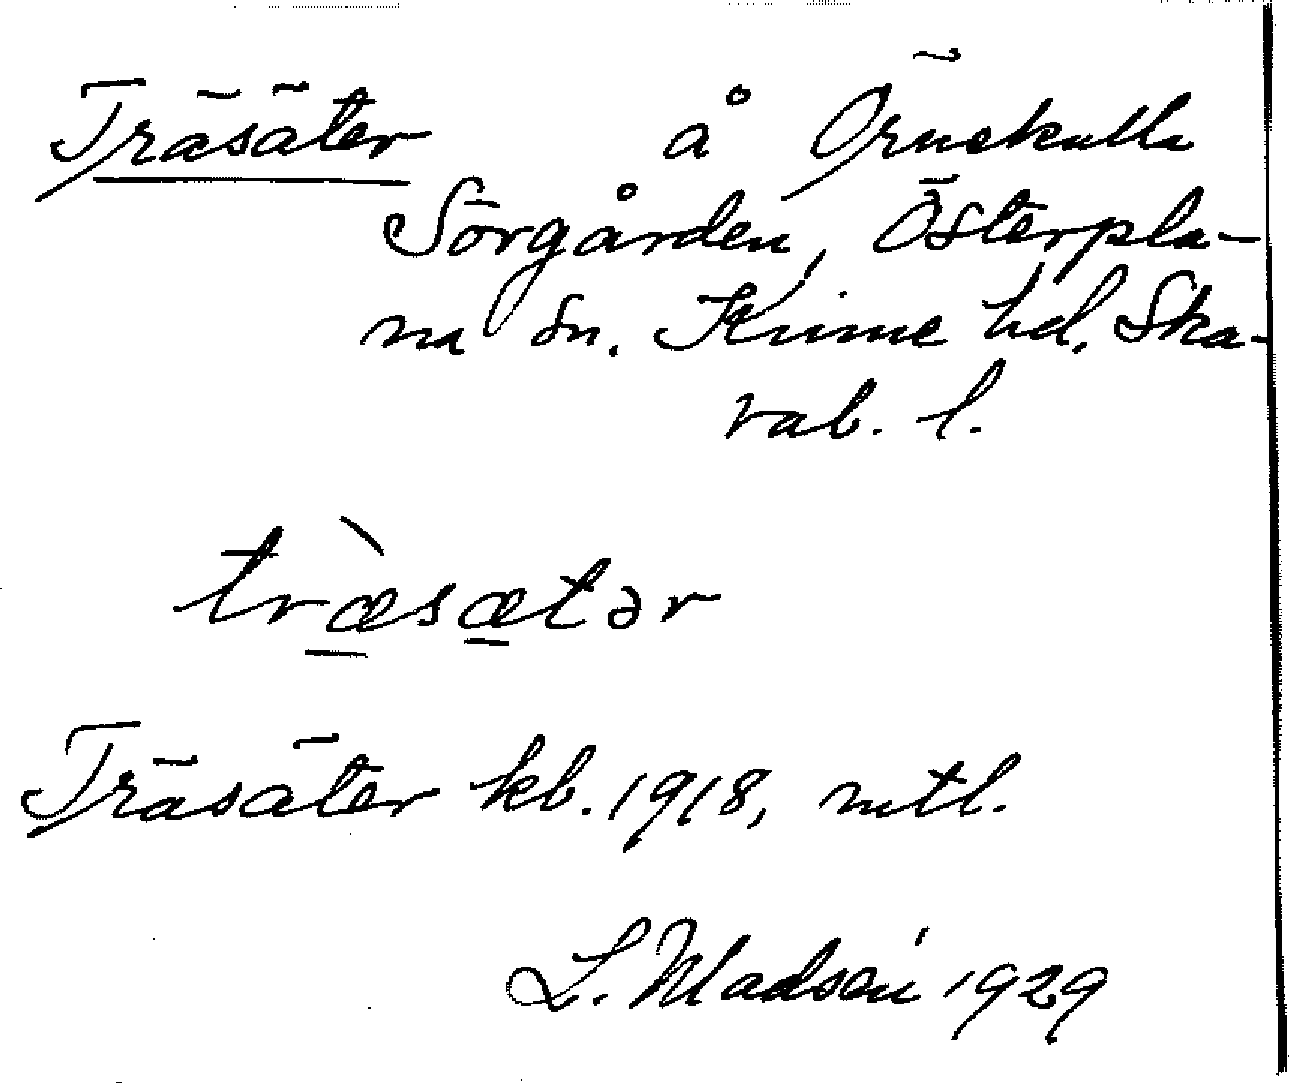 Träsäter å Örnekulla
Sörgården, Österpla-
na sn. Kinne hd, Ska-
rab. l.
træ̀sætər
Träsäter kb. 1918, mtl.
L. Madsén 1929